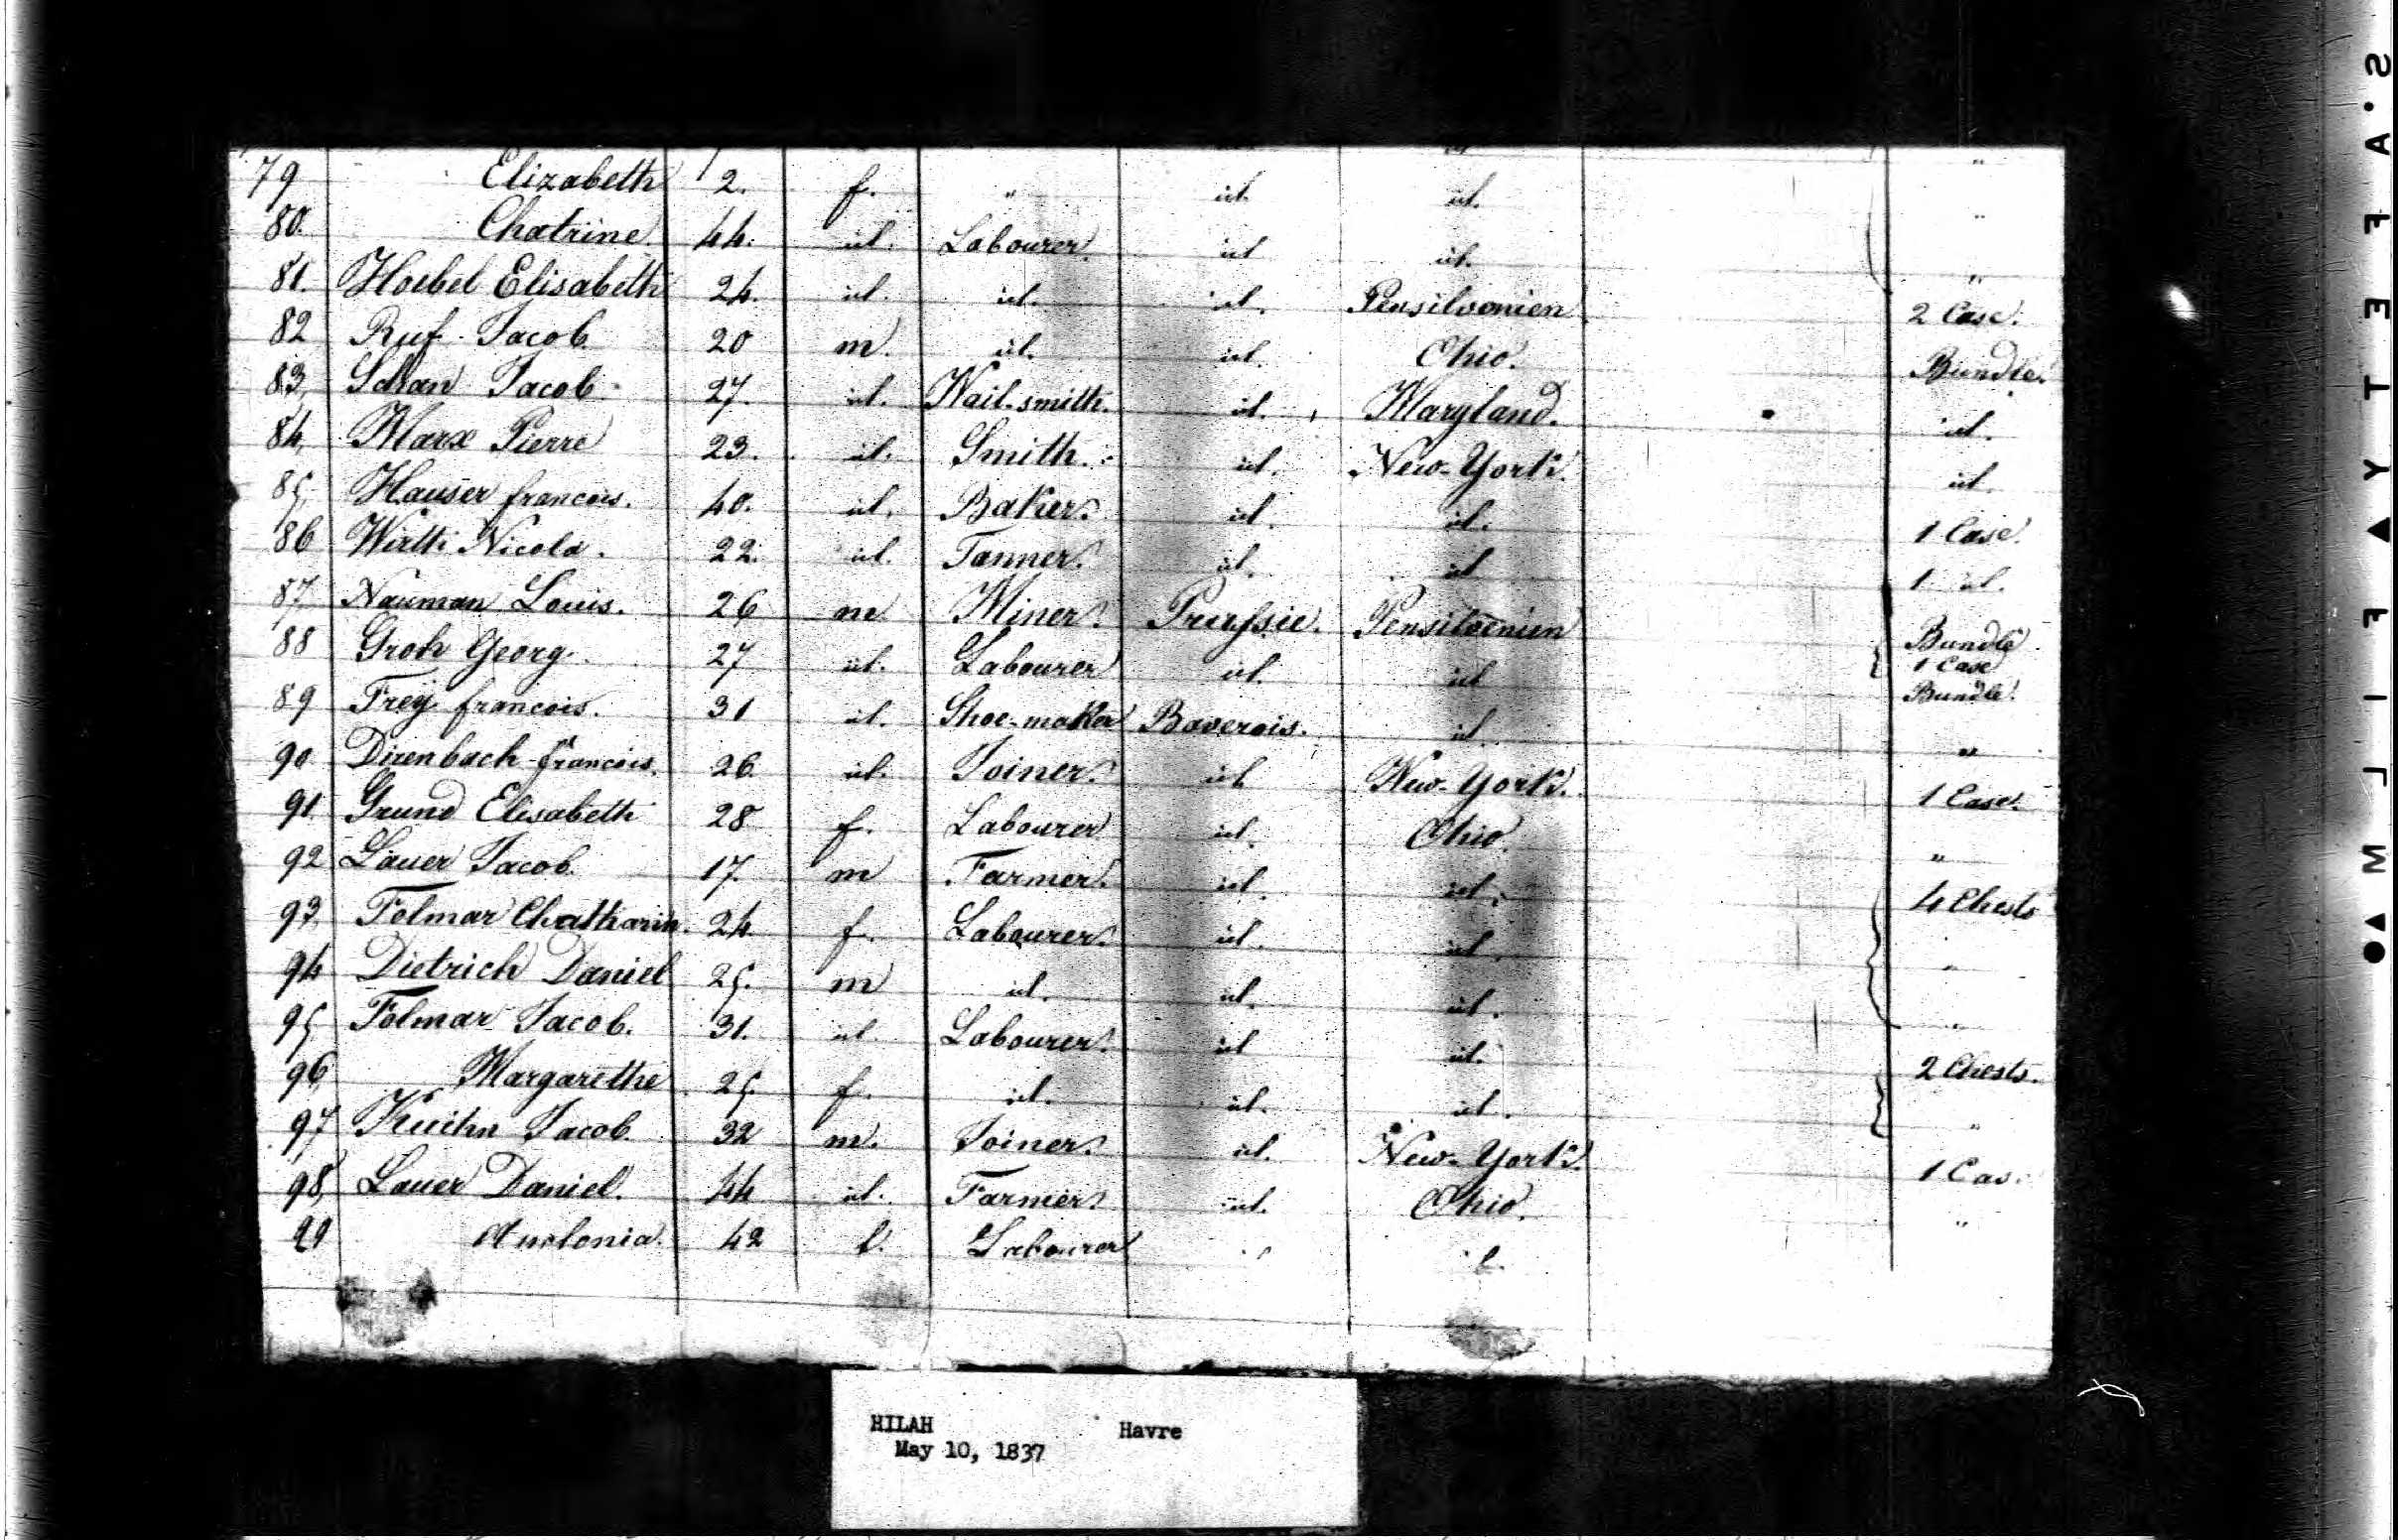 79 Elizabeth 2. f. " id. id. "
80. Chatrine. 44. id. Labourer. id id. "
81. Hoebel Elisabeth 24. id. id. id. Pensilvanien 2 Case.
82 Ruf Jacob. 20 m. id. id. Ohio. Bundle.
83, Schan Jacob 27. id. Nail-smith. id. Maryland. id.
84, Marx Pierre 23. id. Smith. id. New-York. id.
85, Hauser francois. 40. id. Baker. id. id. 1 Case.
86 Wirth Nicola. 22. id. Tanner. id. id 1 id.
87, Nauman Louis. 26 m. Miner. Preussie. Pensilvenien Bundle
88 Groh Georg. 27 id. Labourer id. id 1 Case Bundle.
89 Frey francois. 31 id. Shoe-maker Baverois. id "
90 Direnbach francois. 26. id. Joiner. id New-York. 1 Case.
91. Grund Elisabeth 28 f. Labourer id. Ohio. "
92 Lauer Jacob. 17. m Farmer. id. id. 4 Chests
93, Folmar Chatharin. 24. f. Labourer. id. id. "
94 Dietrich Daniel 25. m id. id. id. "
95 Folmar Jacob. 31. id. Labourer. id id. 2 Chests.
96, Margarethe 25. f. id. id. id. "
97 Kuihn Jacob. 32 m. Joiner. id. New-York. 1 Cas.
98, Lauer Daniel. 44 id. Farmer. id. Ohio. "
99 42 f. Labourer
HILAH Havre
May 10, 1837
SAFETY ▲ FILM ▲●